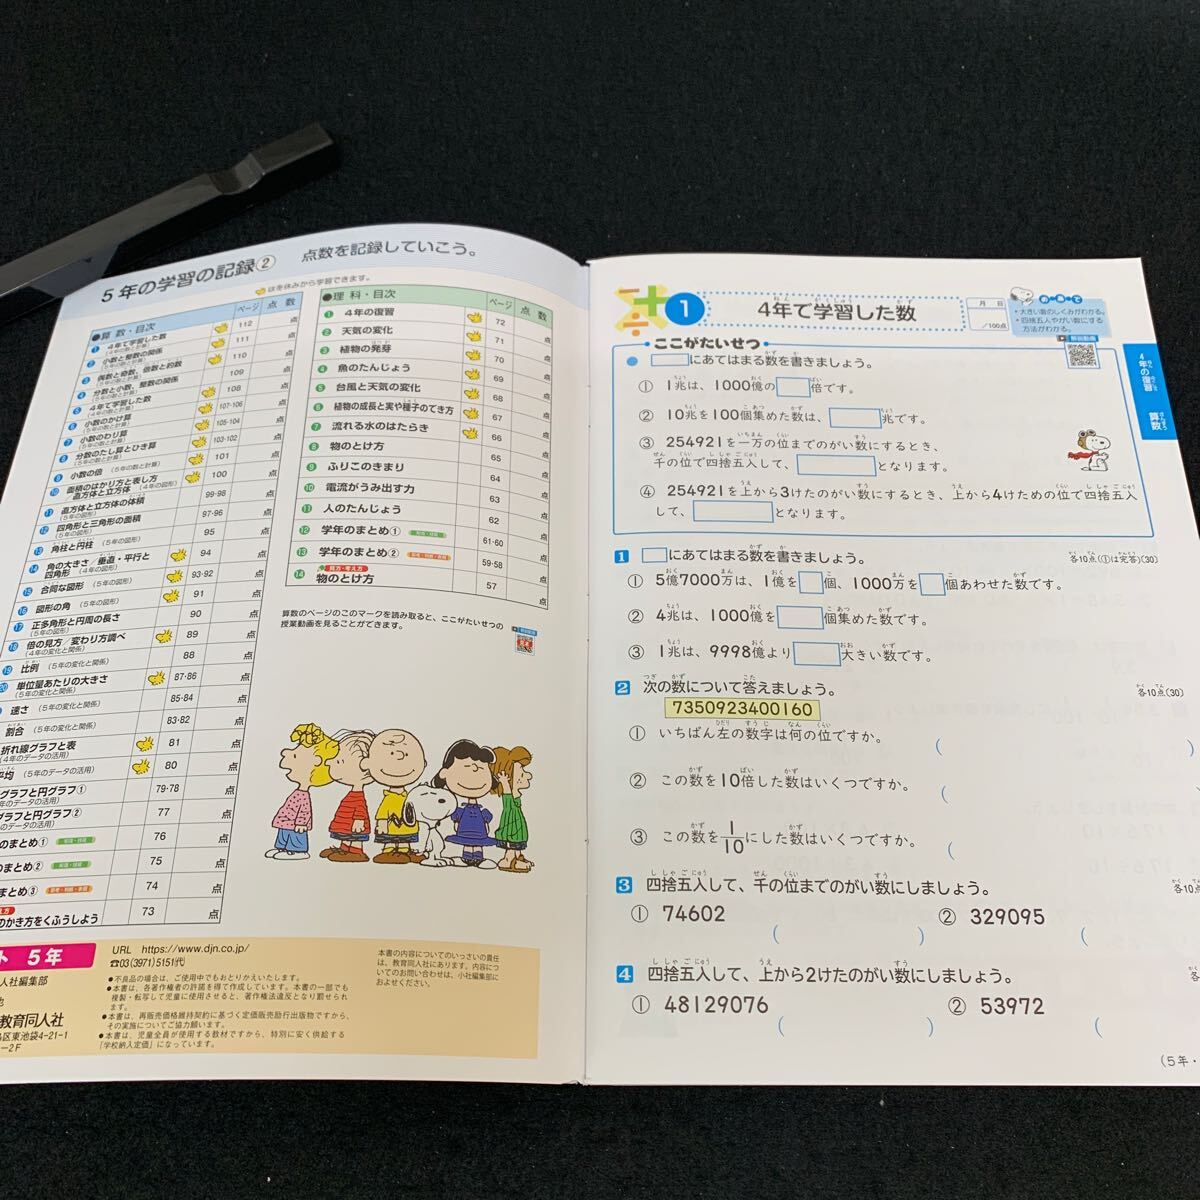 5年の学習の記録②
点数を記録していこう。
は冬休みから学習できます。
●算数・目次 ページ 点数
1 4年で学習した数 112 点
(4年の数と計算)
2 小数と整数の関係 111 点
(5年の数と計算)
3 偶数と奇数、倍数と約数 110 点
(5年の数と計算)
4 分数と小数、整数の関係 109 点
(5年の数と計算)
5 4年で学習した計算 108 点
(4年の数と計算)
6 小数のかけ算 107・106 点
(5年の数と計算)
7 小数のわり算 105・104 点
(5年の数と計算)
8 分数のたし算とひき算 103・102 点
(5年の数と計算)
9 小数の倍 (5年の数と計算) 101 点
10 面積のはかり方と表し方
/直方体と立方体 (4年の図形) 100 点
11 直方体と立方体の体積 99・98 点
(5年の図形)
12 四角形と三角形の面積 97・96 点
(5年の図形)
13 角柱と円柱 (5年の図形) 95 点
14 角の大きさ/垂直・平行と
四角形 (4年の図形) 94 点
15 合同な図形 (5年の図形) 93・92 点
16 図形の角 (5年の図形) 91 点
17 正多角形と円周の長さ 90 点
(5年の図形)
18 倍の見方/変わり方調べ 89 点
(4年の変化と関係)
19 比例 (5年の変化と関係) 88 点
20 単位量あたりの大きさ 87・86 点
(5年の変化と関係)
速さ (5年の変化と関係) 85・84 点
割合 (5年の変化と関係) 83・82 点
折れ線グラフと表 81 点
(4年のデータの活用)
平均 (5年のデータの活用) 80 点
グラフと円グラフ① 79・78 点
年のデータの活用)
グラフと円グラフ② 77 点
のデータの活用)
のまとめ① 76 点
まとめ② 75 点
まとめ③ 74 点
のかき方をくふうしよう 73 点
●理科・目次 ページ 点数
1 4年の復習 72 点
2 天気の変化 71 点
3 植物の発芽 70 点
4 魚のたんじょう 69 点
5 台風と天気の変化 68 点
6 植物の成長と実や種子のでき方 67 点
7 流れる水のはたらき 66 点
8 物のとけ方 65 点
9 ふりこのきまり 64 点
10 電流がうみ出す力 63 点
11 人のたんじょう 62 点
12 学年のまとめ① 61・60 点
13 学年のまとめ② 59・58 点
14 見方・考え方
物のとけ方 57 点
算数のページのこのマークを読み取ると、ここがたいせつの
授業動画を見ることができます。
ト 5年
人社編集部
他
教育同人社
島区東池袋4-21-1
-2F
URL https://www.djn.co.jp/
☎03(3971)5151㈹
●不良品の場合は、ご使用中でもおとりかえいたします。
●本書は、各著作権者の許諾を得て作成しています。本書の一部でも
複製・転写して児童に使用させると、著作権法違反となり罰せられ
ます。
●本書は、再販売価格維持契約に基づく定価販売励行出版物ですから、
その実施についてご協力願います。
●本書は、児童全員が使用する教材ですから、特別に安く供給する
「学校納入定価」になっています。
本書の内容についてのいっさいの責任
は、教育同人社にあります。内容につ
いてのお問い合わせは、小社編集部に
およせください。
1 4年で学習した数
月 日
/100点
めあて
・大きい数のしくみがわかる。
・四捨五入やがい数にする
方法がわかる。
解説動画
4年の復習 算数
ここがたいせつ
● □にあてはまる数を書きましょう。
① 1兆は、1000億の□倍です。
② 10兆を100個集めた数は、□兆です。
③ 254921を一万の位までのがい数にするとき、
千の位で四捨五入して、□となります。
④ 254921を上から3けたのがい数にするとき、上から4けための位で四捨五入
して、□となります。
1 □にあてはまる数を書きましょう。 各10点(①は完答)(30)
① 5億7000万は、1億を□個、1000万を□個あわせた数です。
② 4兆は、1000億を□個集めた数です。
③ 1兆は、9998億より□大きい数です。
2 次の数について答えましょう。 各10点(30)
7350923400160
① いちばん左の数字は何の位ですか。 ( )
② この数を10倍した数はいくつですか。 (
③ この数を1/10にした数はいくつですか。 (
3 四捨五入して、千の位までのがい数にしましょう。 各10点
① 74602 ② 329095
( ) (
4 四捨五入して、上から2けたのがい数にしましょう。 各
① 48129076 ② 53972
( ) (
(5年・